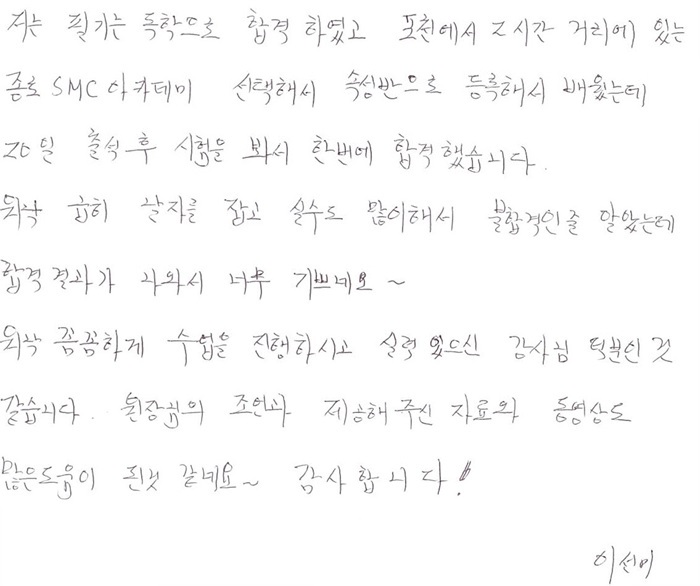 저는 필기는 독학으로 합격 하였고 포천에서 2시간 거리에 있는
종로 SMC아카데미 선택해서 속성반으로 등록해서 배웠는데
20일 출석 후 시험을 봐서 한번에 합격했습니다.
워낙 급히 날자를 잡고 실수도 많이해서 불합격인줄 알았는데
합격결과가 나와서 너무 기쁘네요~
워낙 꼼꼼하게 수업을 진행하시고 실력 있으신 강사님 덕분인것
같습니다. 원장님의 조언과 제공해주신 자료와 동영상도
많은도움이 된것 같네요~ 감사합니다!
이선미